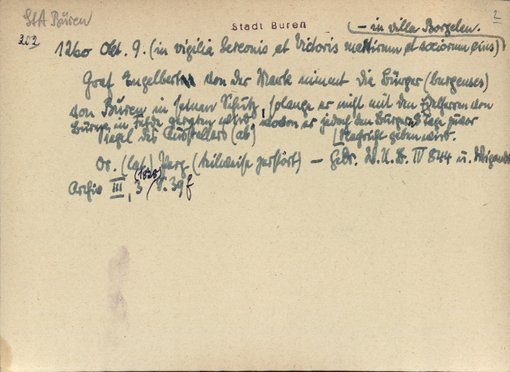 StA Büren
Stadt Büren
– in villa Borgelen.
2
202
1260 Okt. 9. (in vigilia Gereonis et Victoris martirum et sociorum eius)
Graf Engelbert von der Mark nimmt die Bürger (burgenses)
von Büren in seinen Schutz, solange er nicht mit den Edelherrn von
Büren in Fehde geraten wird, wovon er jedoch den Bürgern Tag zuvor
Siegel des Ausstellers (ab) Nachricht geben wird.
Or. (lat.) Perg. (teilweise zerstört) – Gedr. W.U.B. IV 844 u. Wigands
Archiv III, 3 (1828) S. 39f